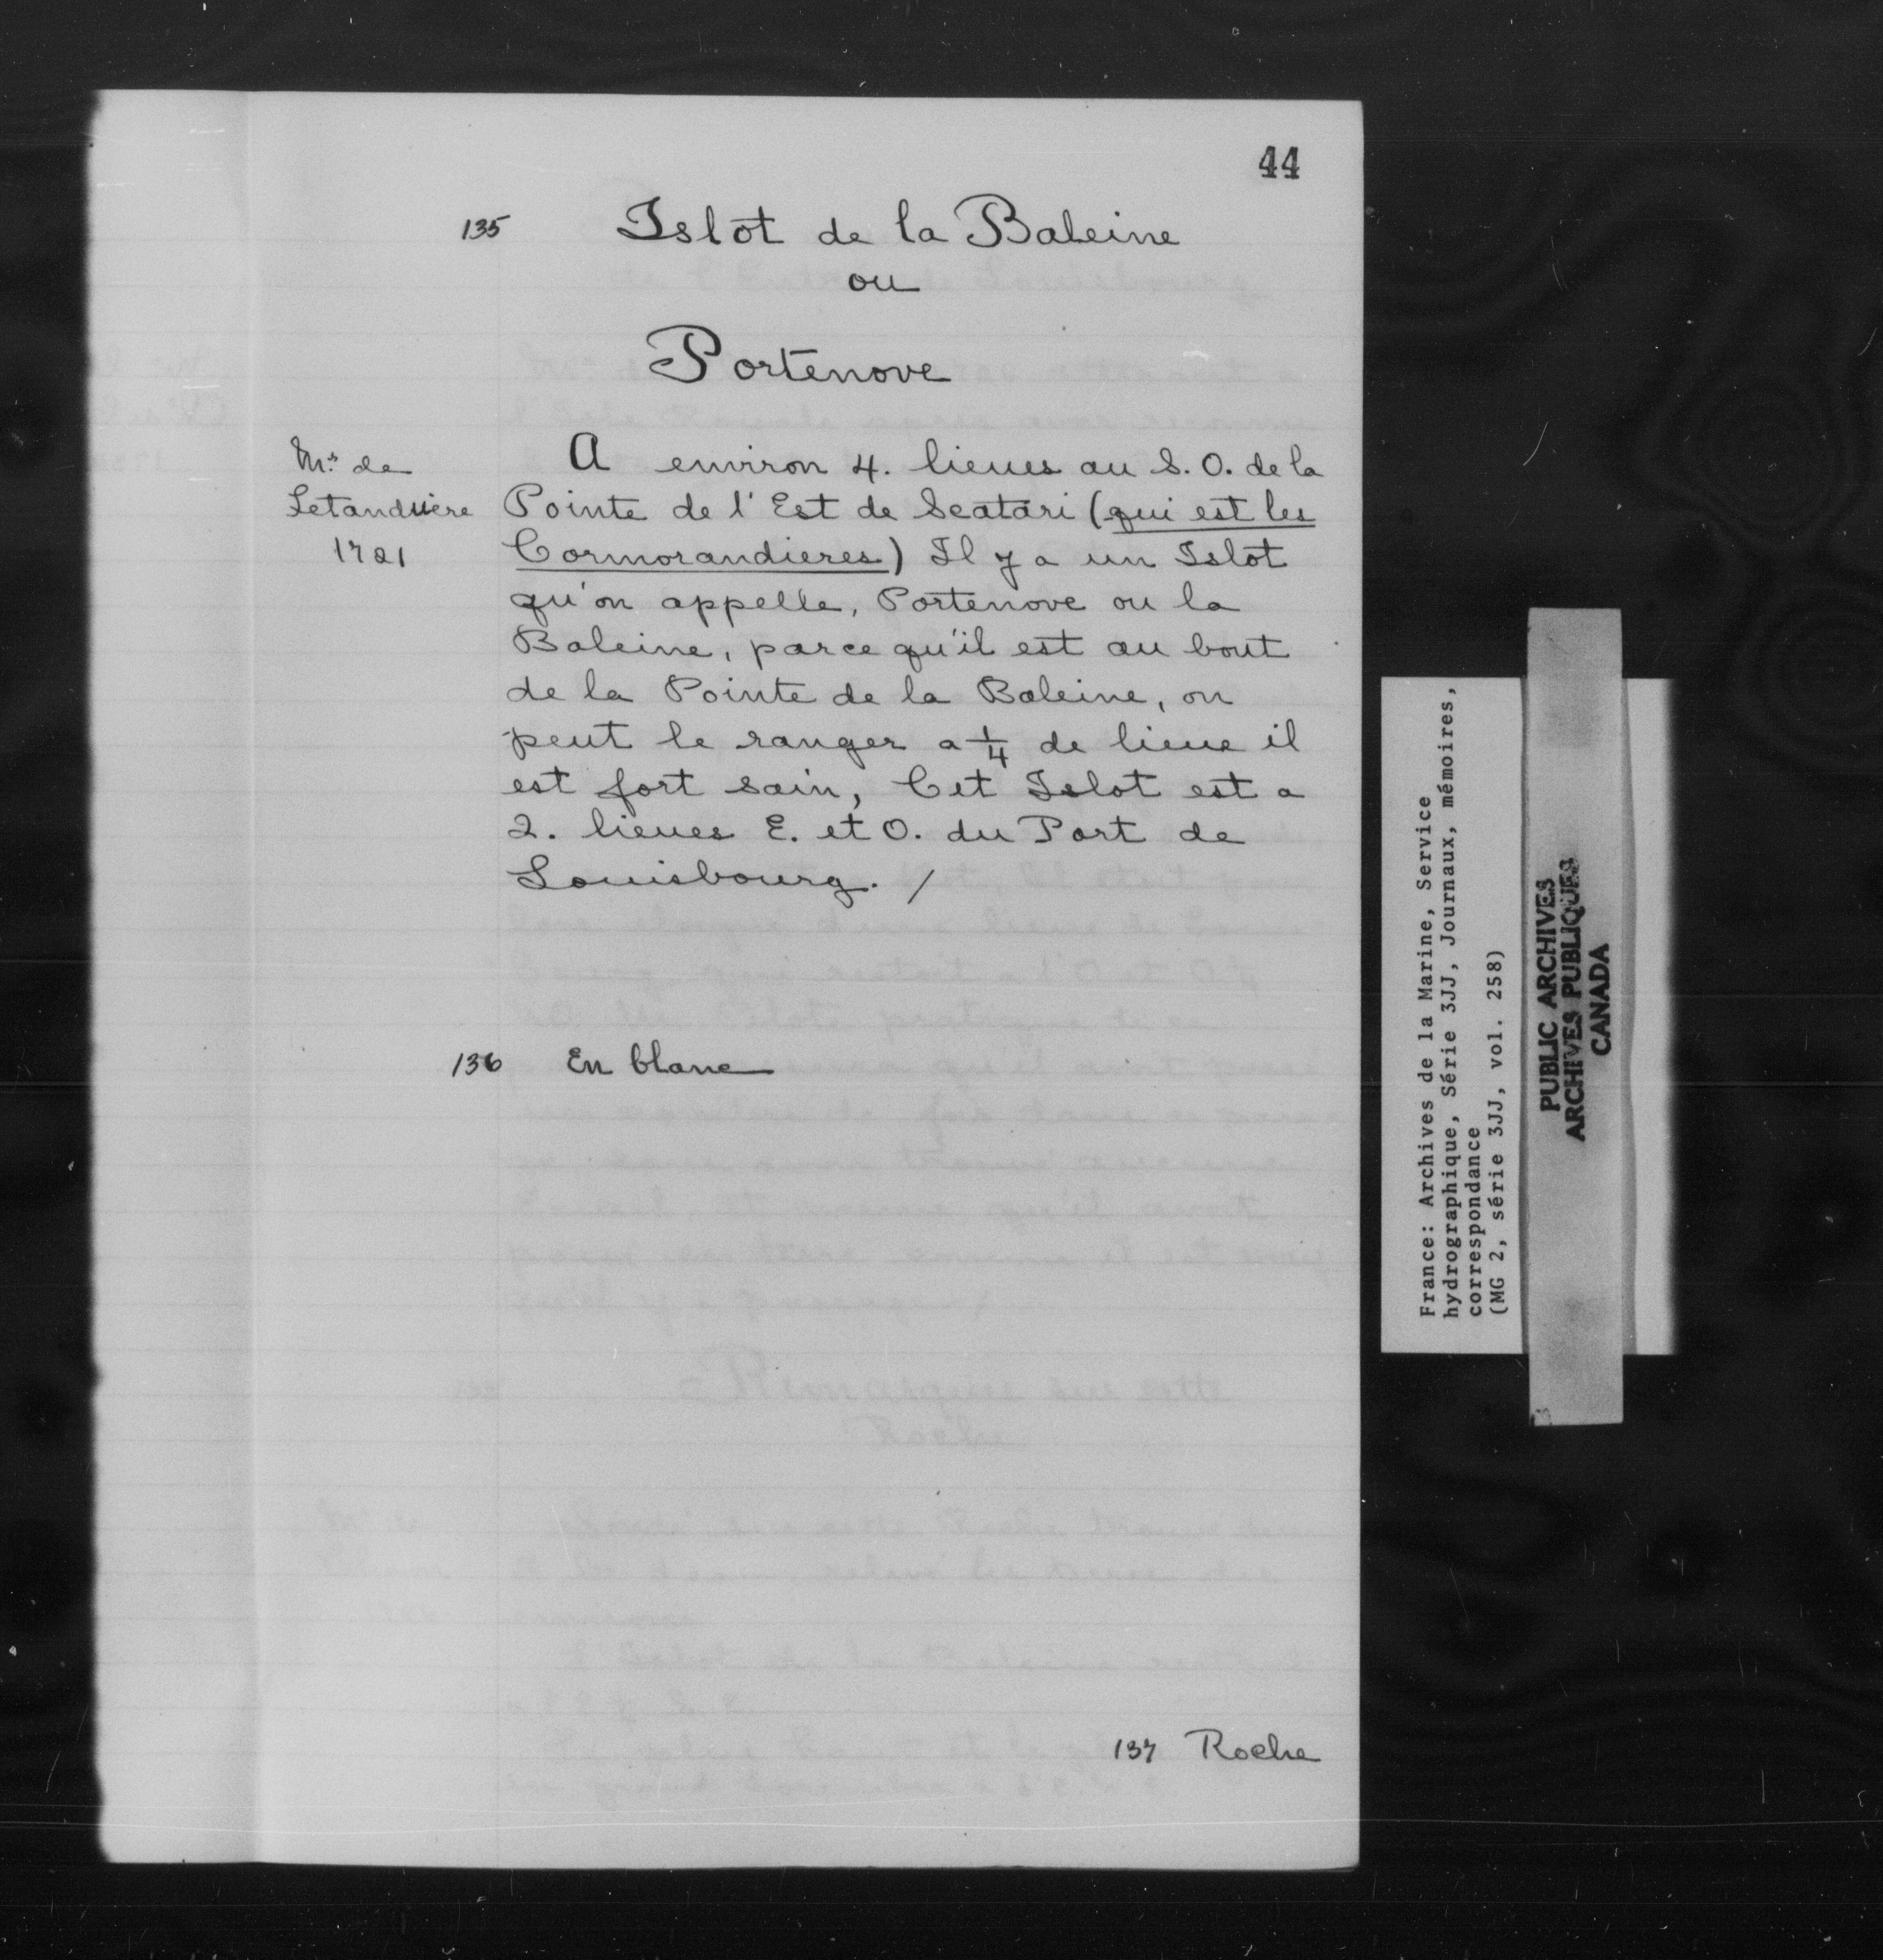 44
135 Islot de la Baleine
ou
Portenove
Mr. de
Letanduère
1721
A environ 4. lieues au S. O. de la
Pointe de l'Est de Scatari (qui est les
Cormorandieres) Il y a un Islot
qu'on appelle, Portenove ou la
Baleine, parce qu'il est au bout
de la Pointe de la Baleine, on
peut le ranger a 1/4 de lieue il
est fort sain, Cet Islot est a
2. lieues E. et O. du Port de
Louisbourg. /
136 En blanc
137 Roche
France: Archives de la Marine, Service
hydrographique, Série 3JJ, Journaux, mémoires,
correspondance
(MG 2, série 3JJ, vol. 258)
PUBLIC ARCHIVES
ARCHIVES PUBLIQUES
CANADA